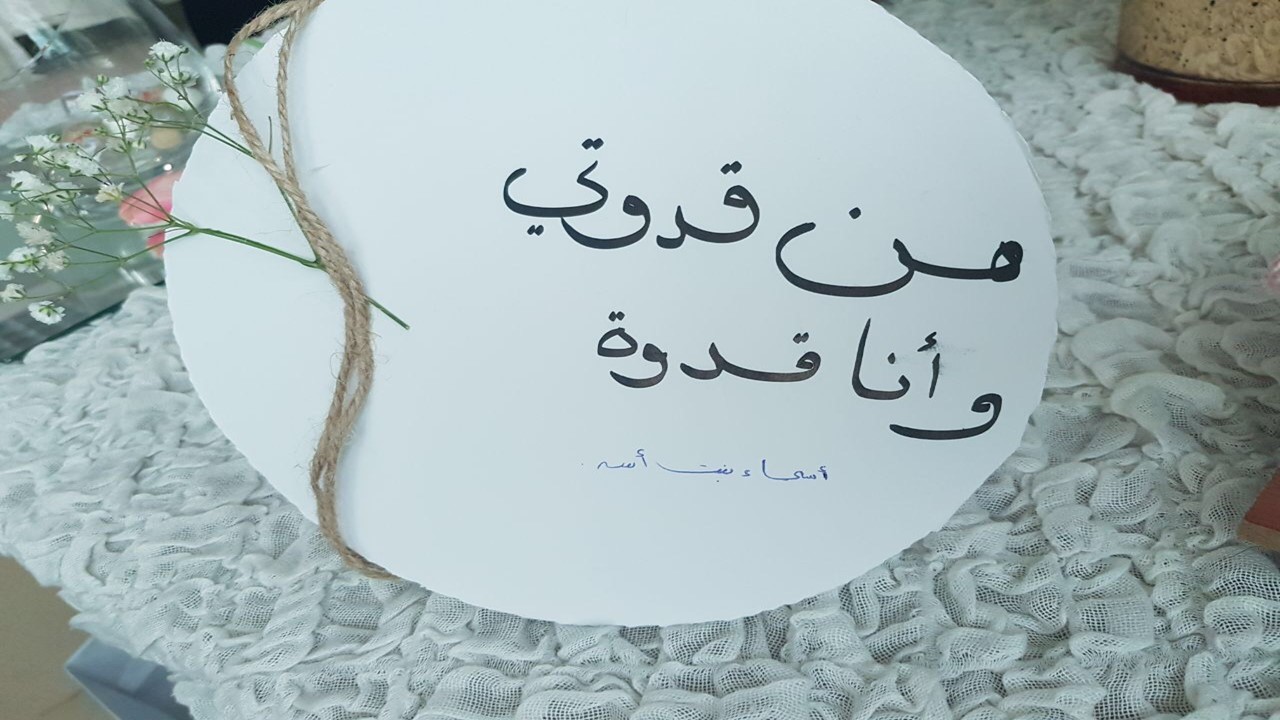 من قدوتي
وأنا قدوة
أسماء بنت